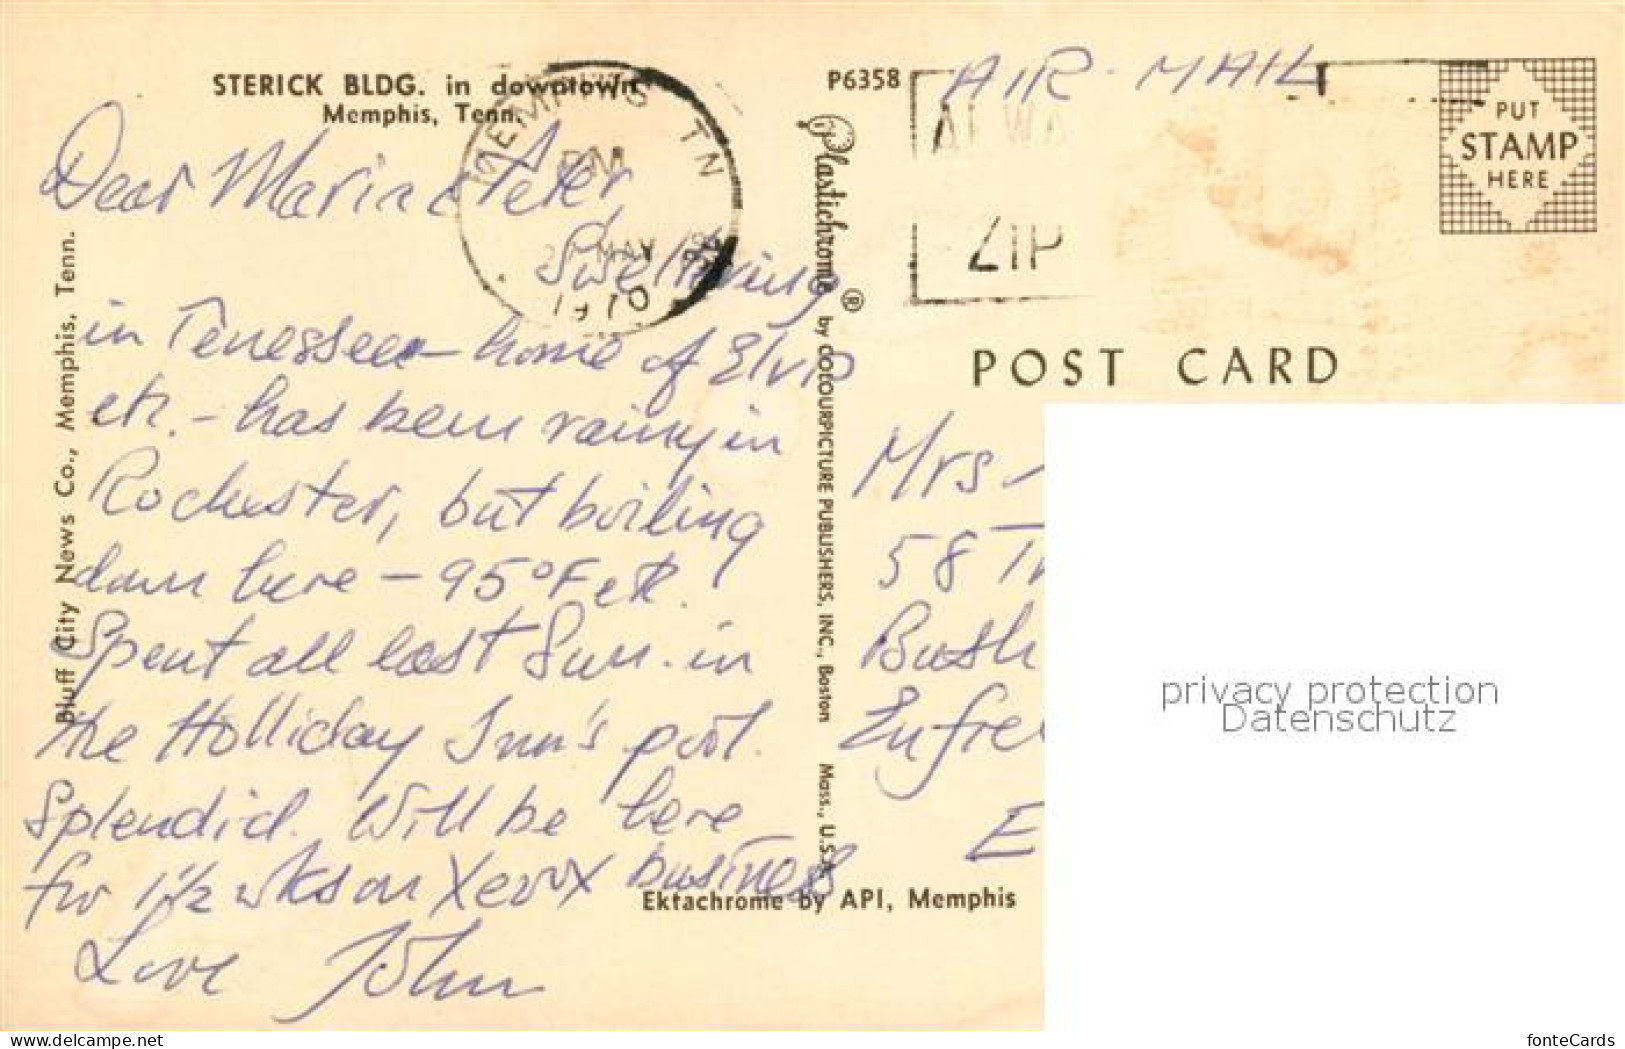 STERICK BLDG. in downtown
Memphis, Tenn.
MEMPHIS TN
PM
MAY
1970
Dear Maria & Peter,
Sweltering
in Tenessee - home of Elvis
etc. - has been rainy in
Rochester, but boiling
down here - 95°F etc.
Spent all last Sun. in
the Holliday Inn's pool.
Splendid. Will be here
for 1½ wks on Xerox business
Love John
Bluff City News Co., Memphis, Tenn.
Plastichrome ® by COLOURPICTURE PUBLISHERS, INC., Boston Mass., U.S.A.
P6358
AIR-MAIL
ZIP
PUT
STAMP
HERE
POST CARD
Mrs
58
Ektachrome by API, Memphis
privacy protection
Datenschutz
www.delcampe.net
fonteCards